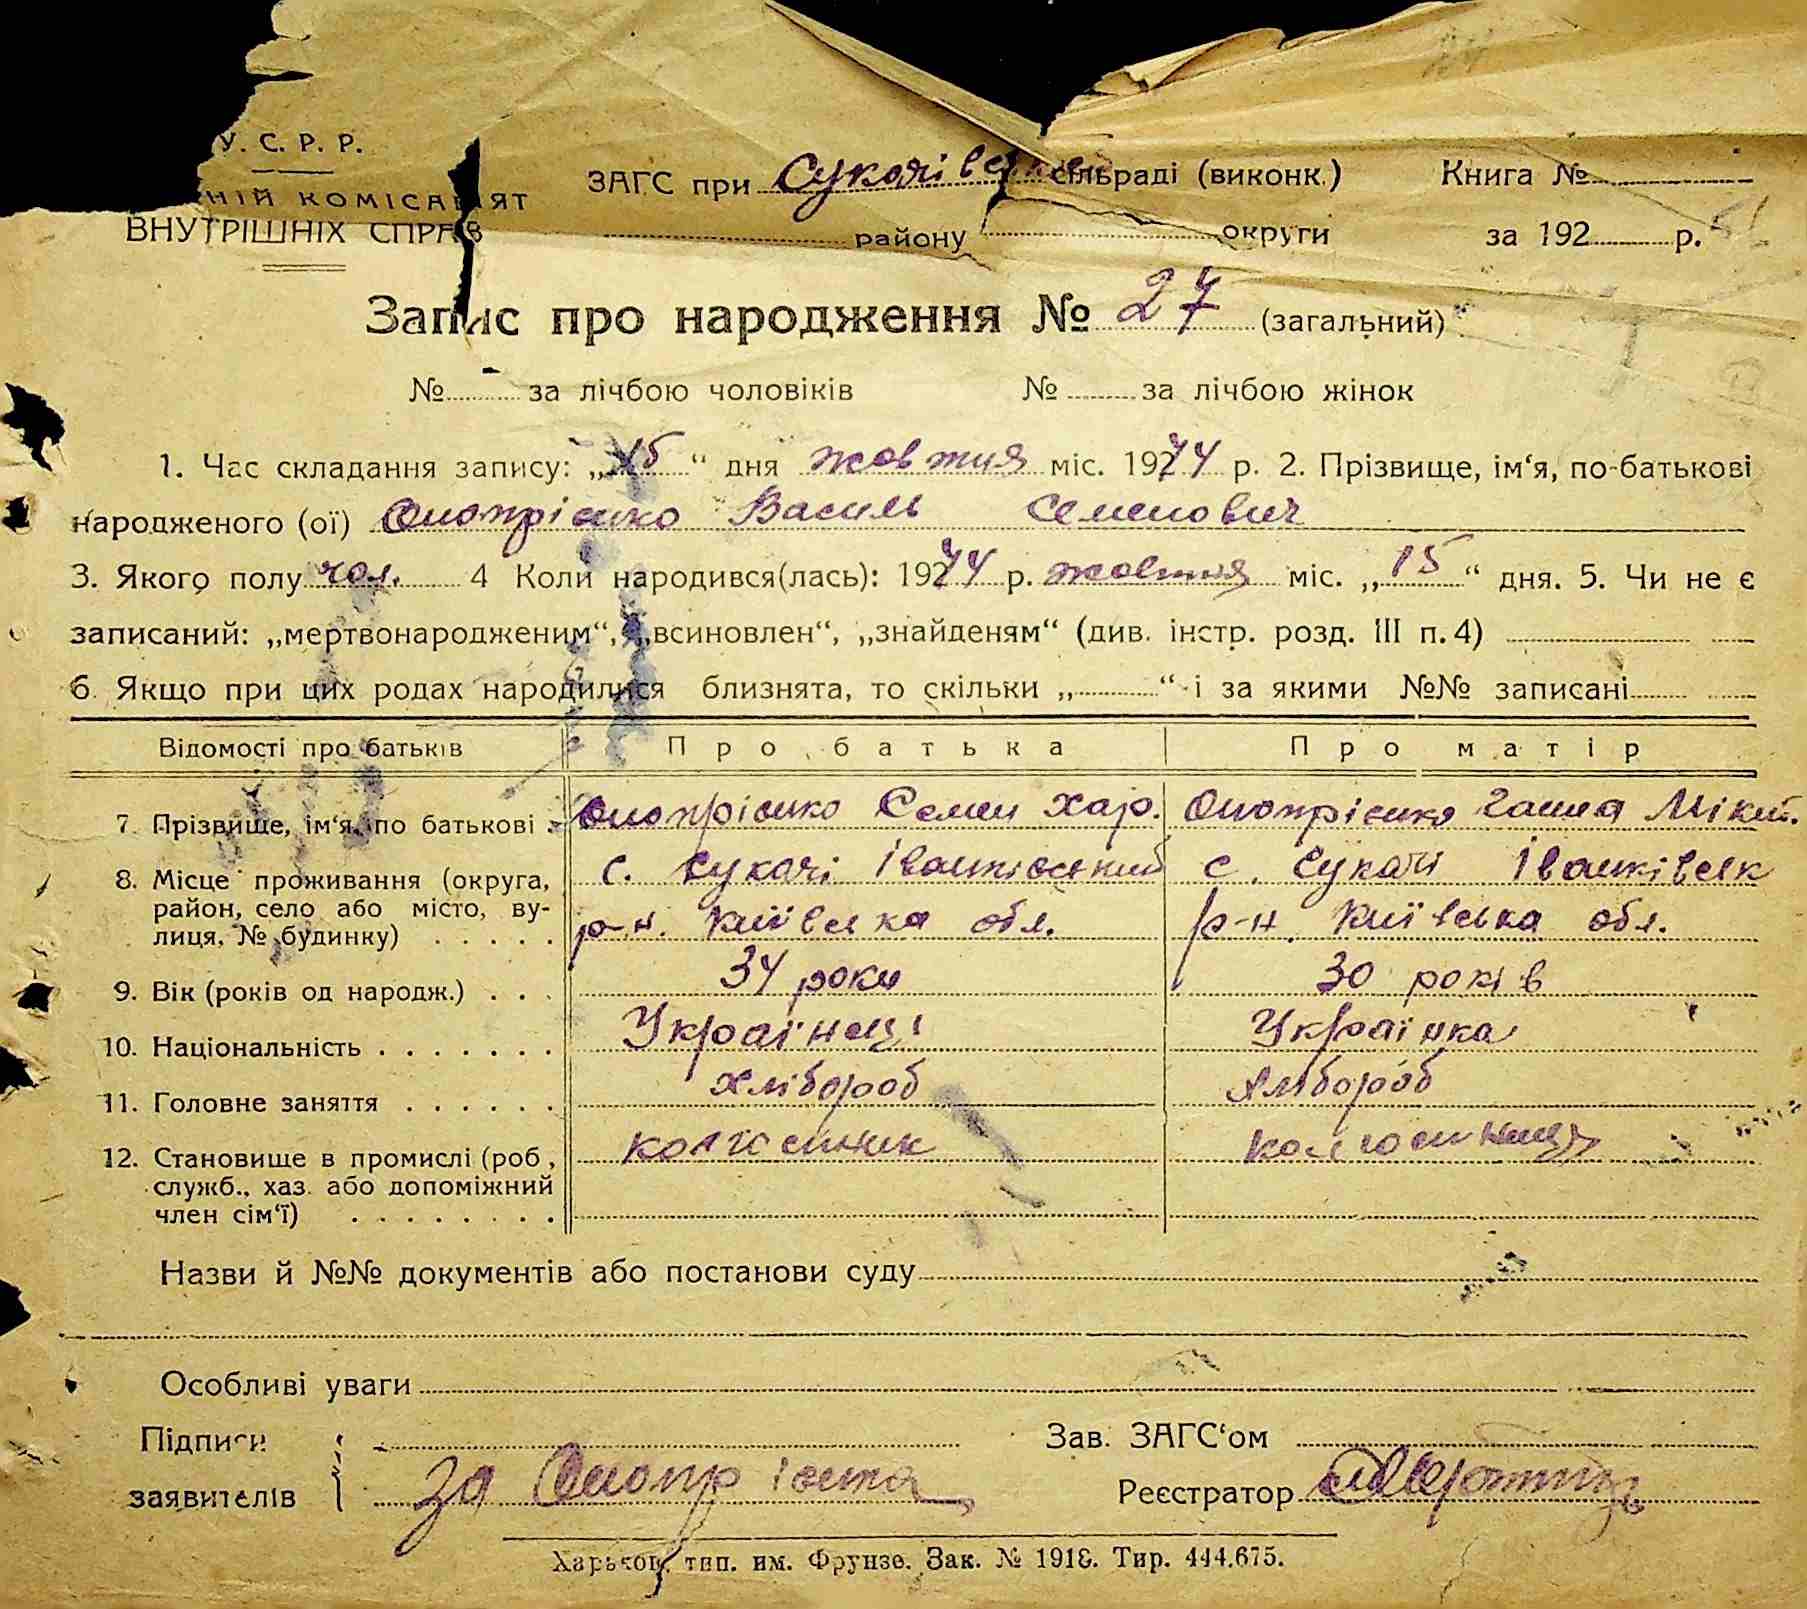 У. С. Р. Р.
НІЙ КОМІСАРІЯТ
ВНУТРІШНІХ СПРАВ
ЗАГС при Сукачівській сільраді (виконк.) Книга №
району округи за 192 р.
Запис про народження № 27 (загальний)
№ за лічбою чоловіків № за лічбою жінок
1. Час складання запису: „15“ дня жовтня міс. 1944 р. 2. Прізвище, ім‘я, по-батькові
народженого (ої) Онопрієнко Василь Семенович
3. Якого полу чол. 4 Коли народився(лась): 1944 р. жовтня міс. „15“ дня. 5. Чи не є
записаний: „мертвонародженим“, „всиновлен“, „знайденям“ (див. інстр. розд. III п. 4)
6. Якщо при цих родах народилися близнята, то скільки „ “ і за якими №№ записані
Відомості про батьків Про батька Про матір
7. Прізвище, ім‘я, по батькові Онопрієнко Семен Хар. Онопрієнко Ганна Микит.
8. Місце проживання (округа, с. Сукачі Іванківський с. Сукачі Іванківськ
район, село або місто, ву- р-н. Київська обл. р-н. Київська обл.
лиця, № будинку)
9. Вік (років од народж.) 34 роки 30 років
10. Національність Українец Українка
11. Головне заняття хлібороб хлібороб
12. Становище в промислі (роб, колгоспник колгоспниця
служб., хаз. або допоміжний
член сім‘ї)
Назви й №№ документів або постанови суду
Особливі уваги
Підписи Зав. ЗАГС‘ом
заявителів за Онопрієнка Реєстратор
Харьков, тип. им. Фрунзе. Зак. № 1918. Тир. 444.675.